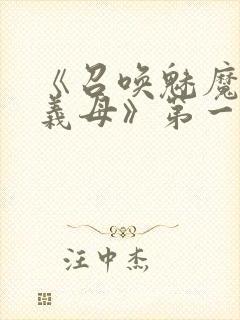 《召唤魅魔
义母》第一
汪中杰